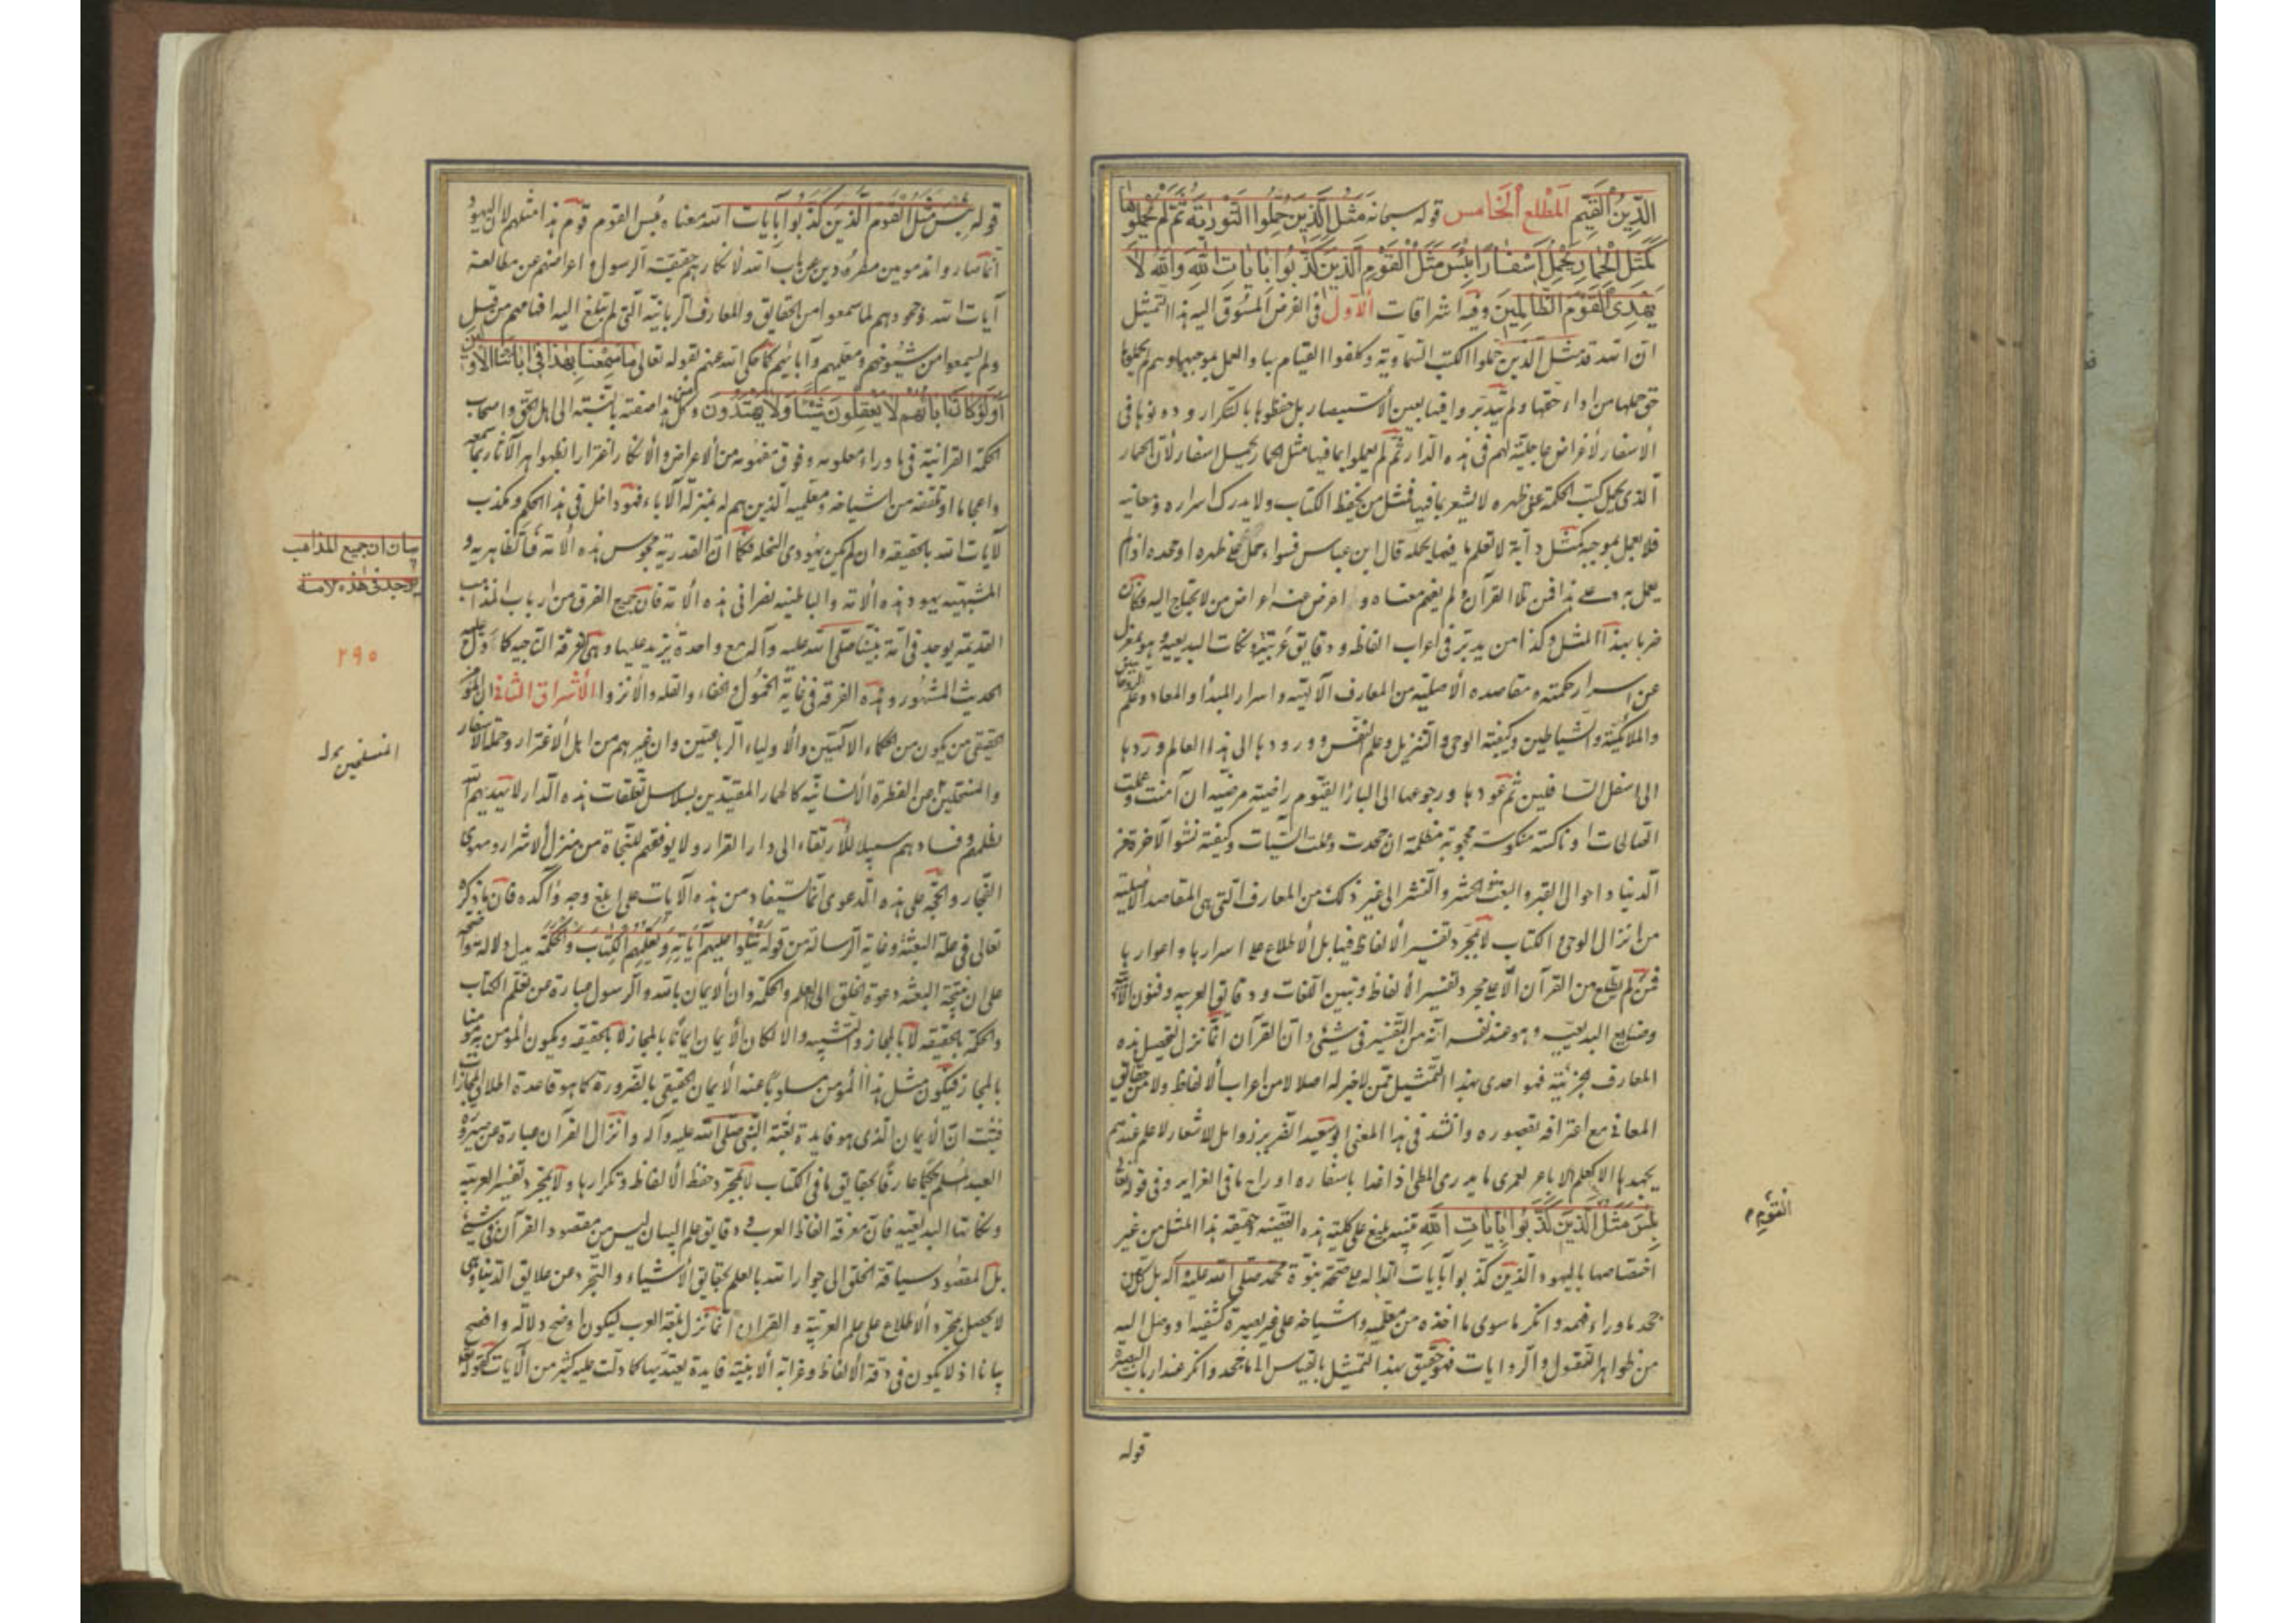 الدين القيم المطلع الخامس قوله سبحانه مثل الذين حملوا التورية ثم لم يحملوها
كمثل الحمار يحمل اسفارا بئس مثل القوم الذين كذبوا بايات الله والله لا
يهدى القوم الظالمين وفيه اشراقات الاول فى الغرض المسوق اليه هذا التمثيل
ان الله قد مثل الذين حملوا الكتب السماوية وكلفوا القيام بها والعمل بموجبها وهم لم يحملوها
حق حملها من اداء حقها ولم يتدبروا فيها بعين الاستبصار بل حفظوها بالتكرار ودونوها فى
الاسفار لاغراض عاجلية لهم فى هذه الدار ثم لم يعملوا بما فيها مثل الحمار يحمل اسفارا لان الحمار
الذى يحمل كتب الحكمة على ظهره لا يشعر بما فيها فمثل من يحفظ الكتاب ولا يدرك اسراره ومعانيه
فلا يعمل بموجبه كمثل دابة لا تعلم ما فيما يحمله قال ابن عباس فسواء حمل على ظهره او جحده اذا لم
يعمل به وعلى هذا فمن تلا القرآن ولم يفهم معناه واعرض عنه اعراض من لا يحتاج اليه فكان
ضربا بهذا المثل وكذا من يدبر فى اعراب الفاظه ودقايق عربيته ونكات البديعية وهو بمعزل
عن اسرار حكمته ومقاصده الاصلية من المعارف الالهية واسرار المبدأ والمعاد وعلم الروحانيين
والملائكة والشياطين وكيفية الوحى والتنزيل وعلم النفس وورودها الى هذا العالم وردها
الى اسفل السافلين ثم عودها ورجوعها الى البارئ القيوم راضية مرضية ان آمنت وعملت
الصالحات او ناكسة منكوسة محجوبة مظلمة ان جحدت وعملت السيئات وكيفية نشو الآخرة من
الدنيا واحوال القبر والبعث والحشر والنشر الى غير ذلك من المعارف التى هى المقاصد الاصلية
من انزال الوحى والكتاب لا مجرد تفسير الالفاظ فيها بل الاطلاع على اسرارها واغوارها
فمن لم يطلع من القرآن الا على مجرد تفسير الالفاظ وتبيين اللغات ودقايق العربيه وفنون الادبية
وصنايع البديعيه وهو عند نفسه انه من التفسير فى شئ وان القرآن انما نزل لتحصيل هذه
المعارف الجزئيه فهو احرى بهذا التمثيل ممن لا خبر له اصلا لا من اعراب الالفاظ ولا من حقايق
المعانى مع اعترافه بقصوره وانشد فى هذا المعنى ابو سعيد الضرير زوامل للاشعار لا علم عندهم
بجيدها الا كعلم الاباعر لعمرى ما يدرى المطى اذا غدا باسفاره او راح ما فى الغراير وفى قوله تعالى
بئس مثل الذين كذبوا بايات الله تنبيه بليغ على كلية هذه القضيه وحقيقة هذا المثل من غير
اختصاصها باليهود الذين كذبوا بايات الداله على صحة نبوة محمد صلى الله عليه وآله بل كل من
جحد ما وراء فهمه وانكر ما سوى ما اخذه من معلميه واشياخه على غير بصيرة كشفية او وصل اليه
من ظواهر النقول والروايات فهو حقيق بهذا التمثيل بالقياس الى ما جحد وانكر عند ارباب البصيرة
قوله
القيوم
قوله بئس مثل القوم الذين كذبوا بايات الله معناه بئس القوم قوم هذا مثلهم لان اليهود
انما صاروا مذمومين مطرودين عن باب الله لانكارهم حقيقة الرسول واعراضهم عن مطالعة
آيات الله وجحودهم لما سمعوا من الحقايق والمعارف الربانية التى لم تبلغ اليه افهامهم من قبل
ولم يسمعوا من شيوخهم ومعلميهم وآبائهم كما حكى الله عنهم بقوله تعالى ما سمعنا بهذا فى ابائنا الاولين
اولو كان اباؤهم لا يعقلون شيئا ولا يهتدون وكل من هذا صفته بالنسبة الى اهل الحق واصحاب
الحكمة القرانية فى ما وراء معلومه وفوق مفهومه من الاعراض والانكار اغترارا بظواهر الآثار بما سمعه
واعجابا بما تلقفه من اشياخه ومعلميه الذين هم له بمنزلة الآباء فهو داخل فى هذا الحكم ومكذب
لآيات الله بالحقيقه وان لم يكن يهودى النحله فكما ان القدرية مجوس هذه الامة فالظاهريه و
المشبهة يهود هذه الامة والباطنيه نصرانى هذه الامة فان جميع الفرق من ارباب المذاهب
القديمة يوجد فى امة نبينا صلى الله عليه وآله مع واحدة يزيد عليها وهى الفرقة الناجيه كما دل عليه
الحديث المشهور وهذه الفرقه فى غاية الخمول والخفاء والقله والانزوا الاشراق الثانى ان المؤمن
الحقيقى من يكون من الحكماء الالهيين والاولياء الربانيين وان غيرهم من اهل الاغترار وحملة الاسفار
والمنسلخين عن الفطرة الانسانيه كالحمار المقيدين بسلاسل تعلقات هذه الدار لا يهديهم الله
بظلمهم وفسادهم سبيلا للارتقاء الى دار القرار ولا يوفقهم للنجاة من منزل الاشرار ومهوى
الفجار والحجة على هذه الدعوى انما تستفاد من هذه الآيات على ابلغ وجه واكده فان ما ذكره
تعالى فى علة البعثة وغاية الرسالة من قوله يتلوا عليهم آياته ويعلمهم الكتاب والحكمة يدل دلالة واضحة
على ان نتيجة البعثة دعوة الخلق الى العلم والحكمة وان الايمان بالله والرسول عبارة من تعلم الكتاب
والحكمة بالحقيقه لا بالمجاز والتشبيه والا لكان الايمان ايمانا بالمجاز لا بالحقيقه ويكون المؤمن به مؤمنا
بالمجاز فيكون مثل هذا المؤمن مسلوبا عنه الايمان الحقيقى بالضرورة كما هو قاعدة اطلاق المجازات
فثبت ان الايمان الذى هو فايدة بعثة النبى صلى الله عليه وآله وانزال القرآن عبارة عن صيرورة
العبد المسلم حكيما عارفا بحقايق ما فى الكتاب لا بمجرد حفظ الالفاظ وتكرارها ولا بمجرد تفسير العربية
ونكاتها البديعيه فان معرفة الفاظ العرب ودقايق علم البيان ليس من مقصود القرآن فى شئ
بل المقصود سياقة الخلق الى جوار الله بالعلم بحقايق الاشياء والتجرد عن علايق الدنيا وهى
لا يحصل بمجرد الاطلاع على علم العربية والقران انما نزل بلغة العرب ليكون اوضح دلالة وافصح
بيانا اذ لا يكون فى دقة الالفاظ وغرابة الابنية فايدة يعتد بها كما دلت عليه كثير من الآيات كقوله تعالى
بيان ان جميع المذاهب
يوجد فى هذه الامة
٢٩٥
المنسلخين